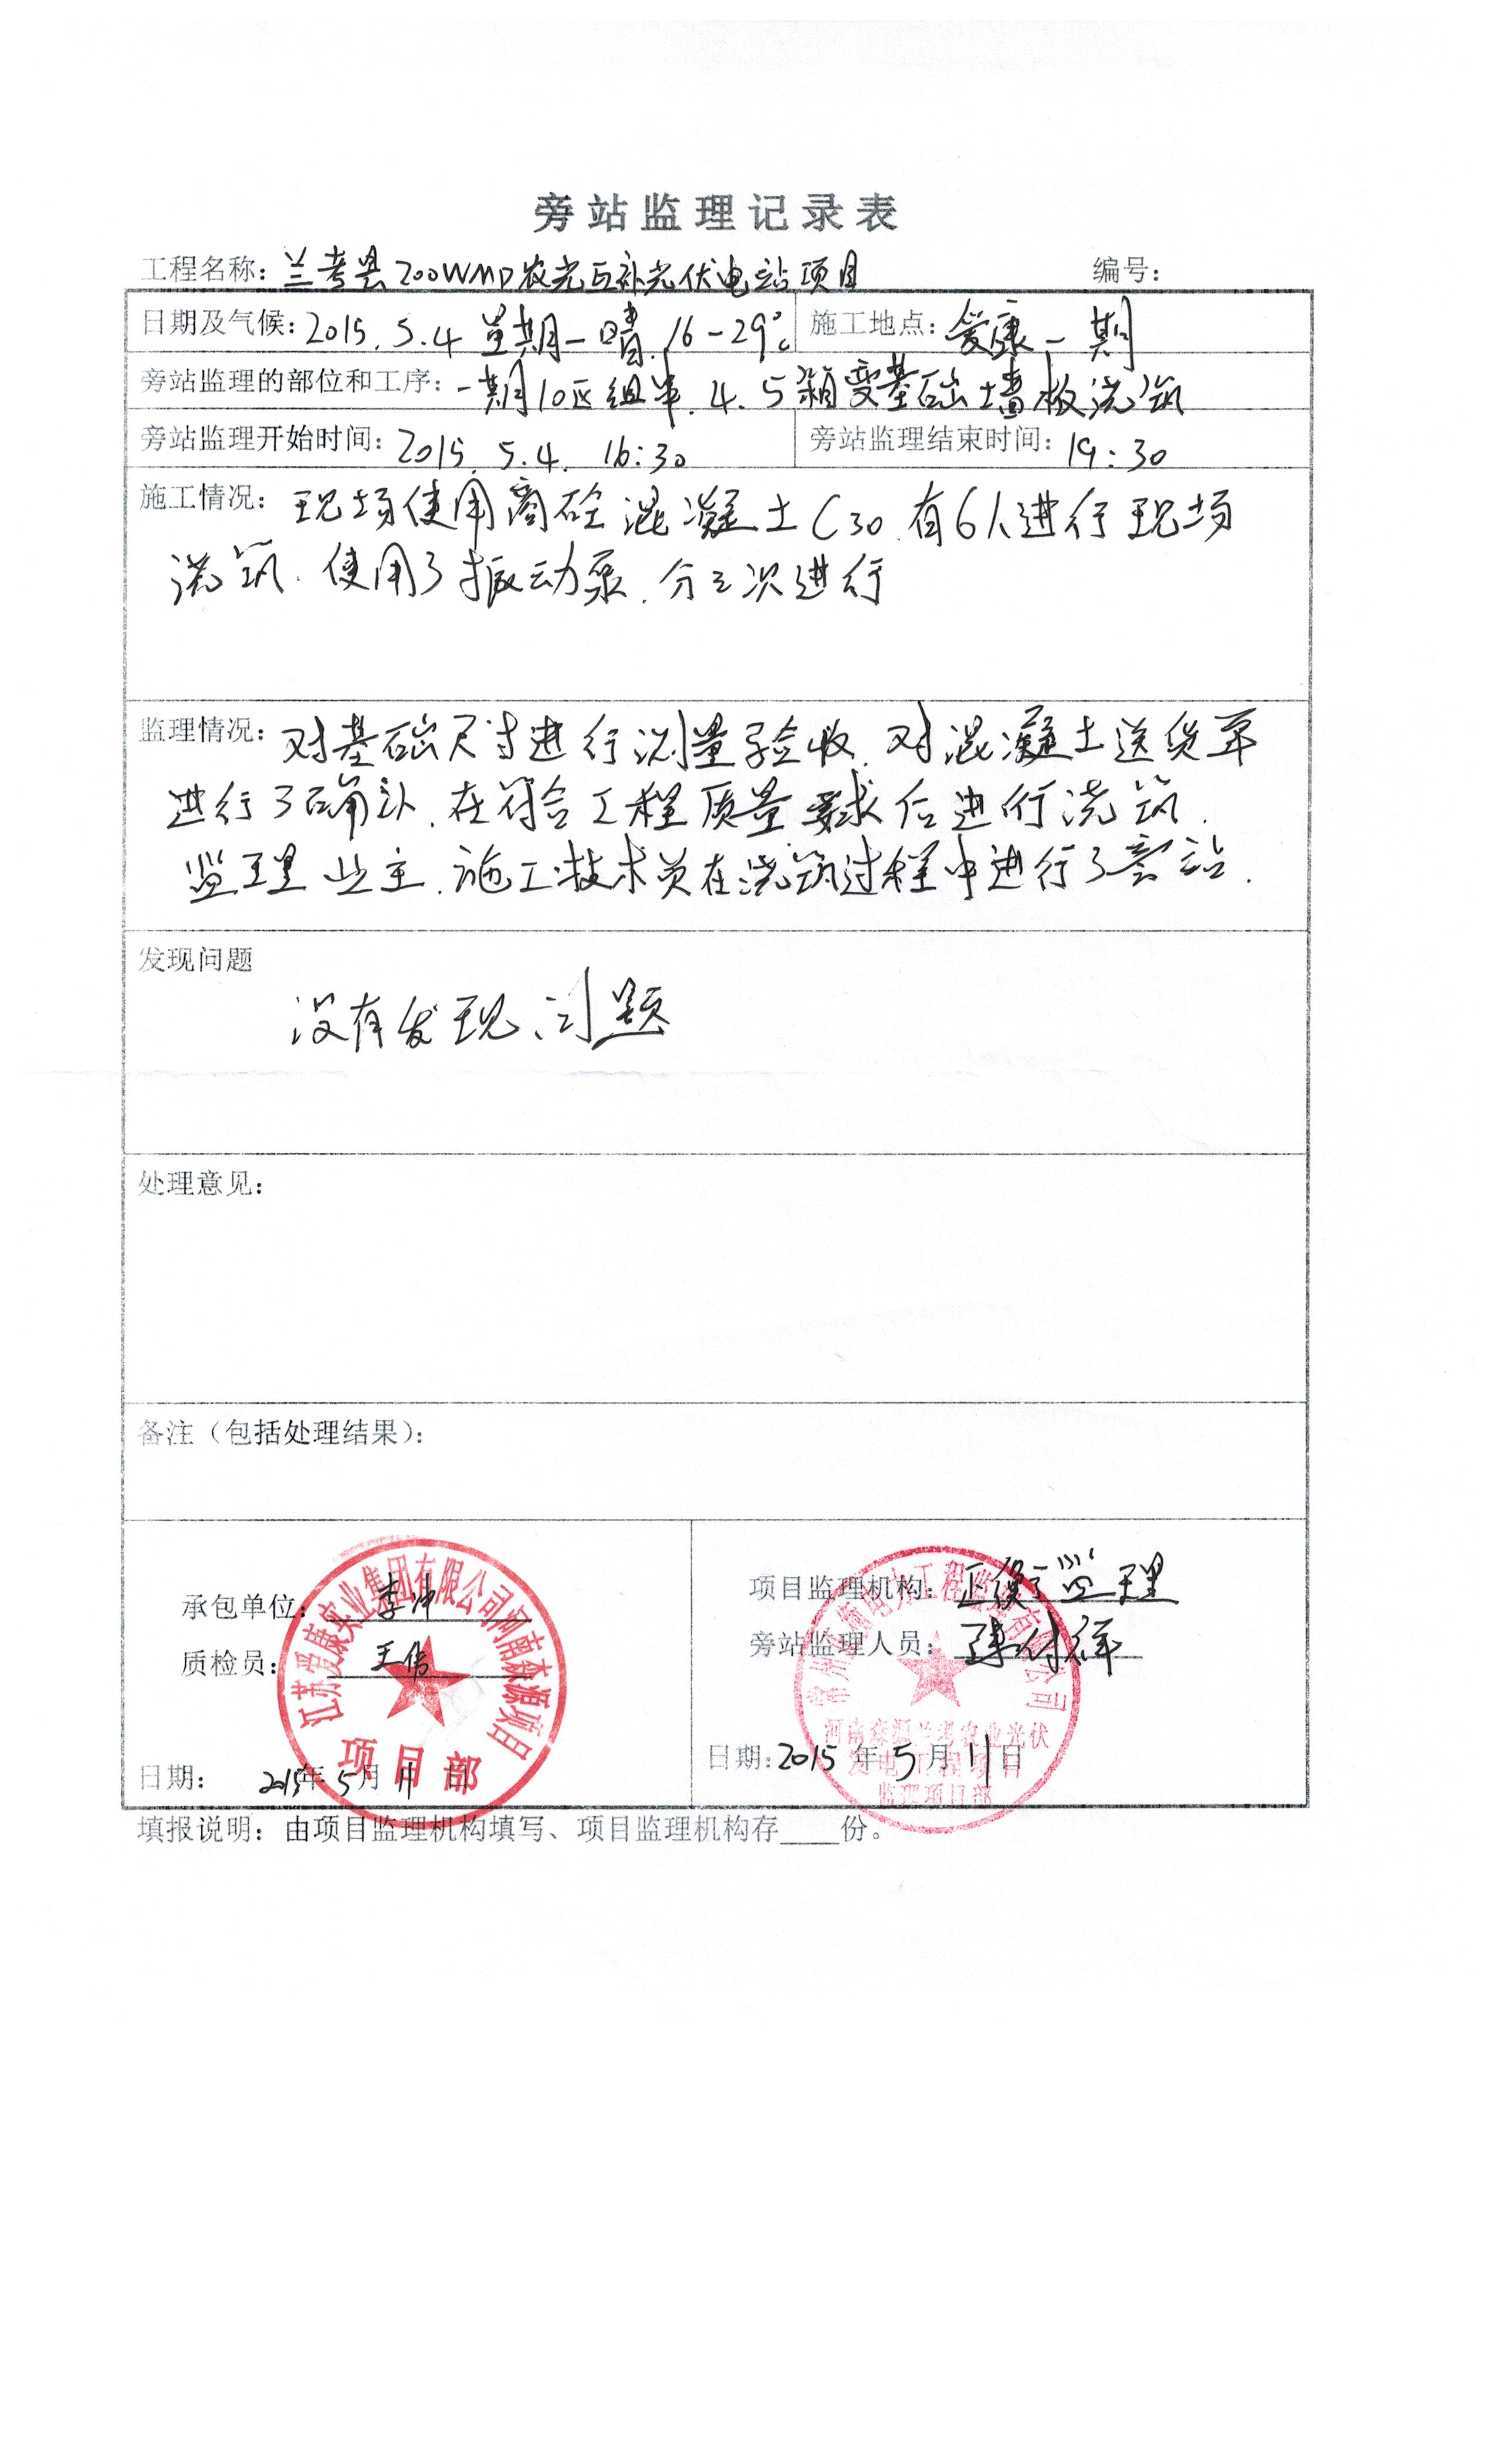 旁站监理记录表
工程名称：兰考县200WMP农光互补光伏电站项目 编号：
日期及气候：2015.5.4 星期一晴.16-29℃ 施工地点：爱康一期
旁站监理的部位和工序：一期10区组串.4.5箱变基础墙板浇筑
旁站监理开始时间：2015.5.4. 16:30 旁站监理结束时间：19:30
施工情况：现场使用商砼混凝土C30.有6人进行现场
浇筑.使用了振动泵.分三次进行
监理情况：对基础尺寸进行测量验收.对混凝土送货单
进行了确认.在符合工程质量要求后进行浇筑.
监理业主.施工技术员在浇筑过程中进行了旁站.
发现问题
没有发现问题
处理意见：
备注（包括处理结果）：
承包单位：李冲
质检员：王伟
日期：2015年5月11
江苏爱康实业集团有限公司河南森源项目
项目部
项目监理机构：正衡监理
旁站监理人员：陈付祥
日期：2015年5月11日
河南森源兰考农业光伏
发电工程项目
监理项目部
填报说明：由项目监理机构填写、项目监理机构存____份。